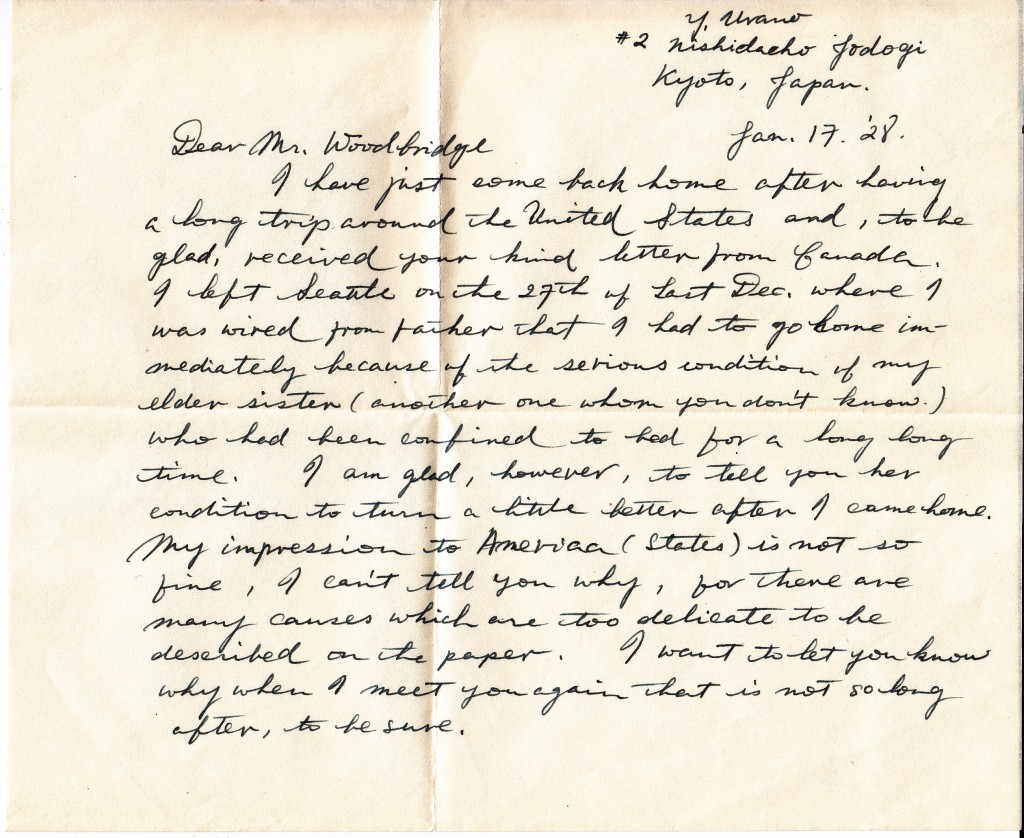 Y. Urano
#2 Nishidacho Jodogi
Kyoto, Japan.
Jan. 17. '28.
Dear Mr. Woodbridge
I have just come back home after having
a long trip around the United States and, to be
glad, received your kind letter from Canada.
I left Seattle on the 27th of last Dec. where I
was wired from father that I had to go home im-
mediately because of the serious condition of my
elder sister (another one whom you don't know.)
who had been confined to bed for a long long
time. I am glad, however, to tell you her
condition to turn a little better after I came home.
My impression to America (States) is not so
fine, I can't tell you why, for there are
many causes which are too delicate to be
described on the paper. I want to let you know
why when I meet you again that is not so long
after, to be sure.